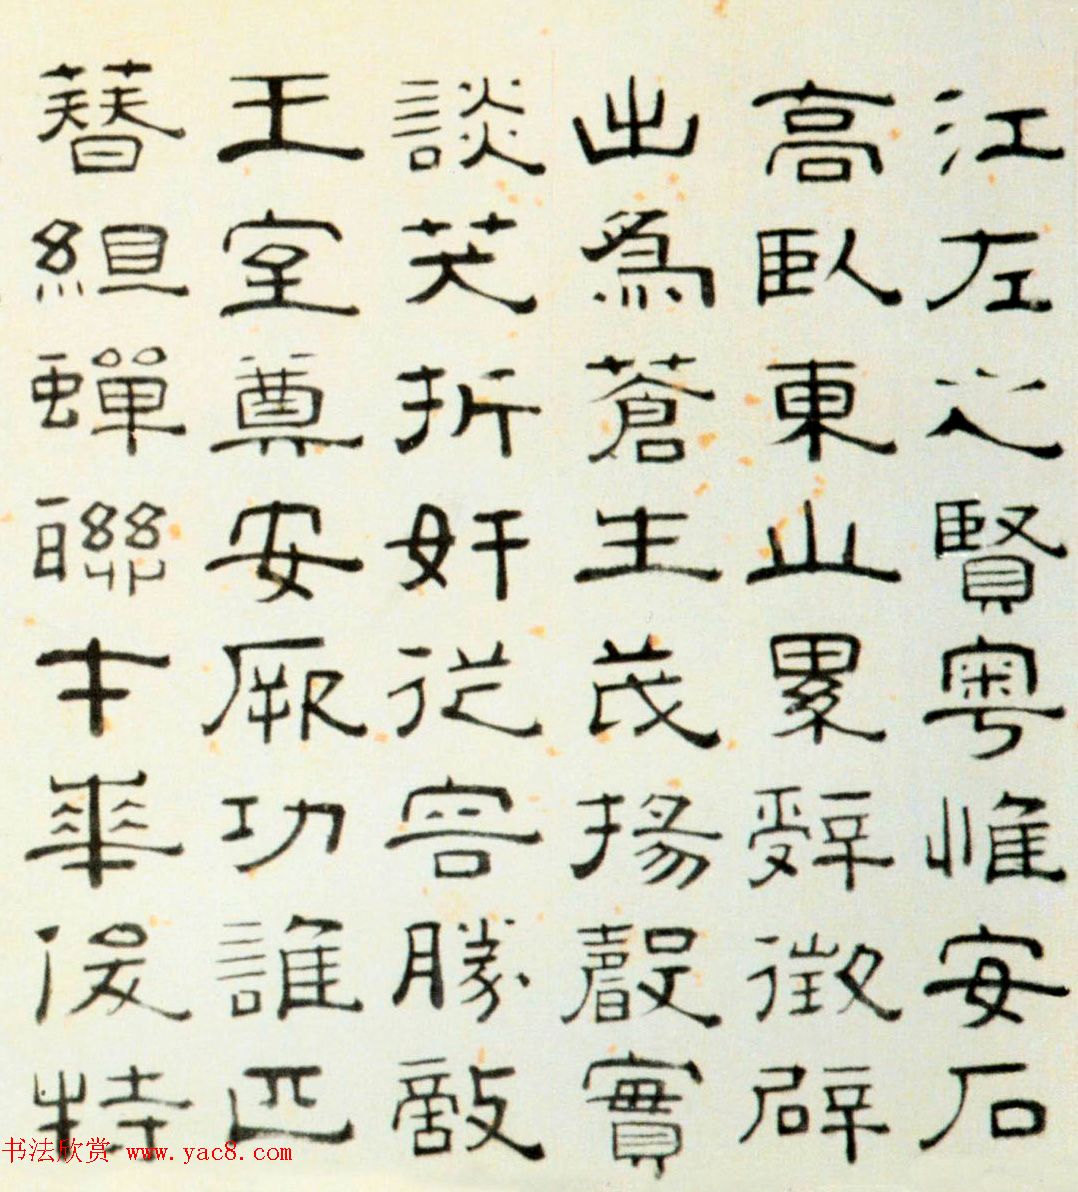 江左之賢粤惟安石
高臥東山累辭徵辟
出爲蒼生茂揚聲實
談芺折奸從容勝敵
王室奠安厥功誰匹
簪組蟬聯才華俊特
书法欣赏 www.yac8.com